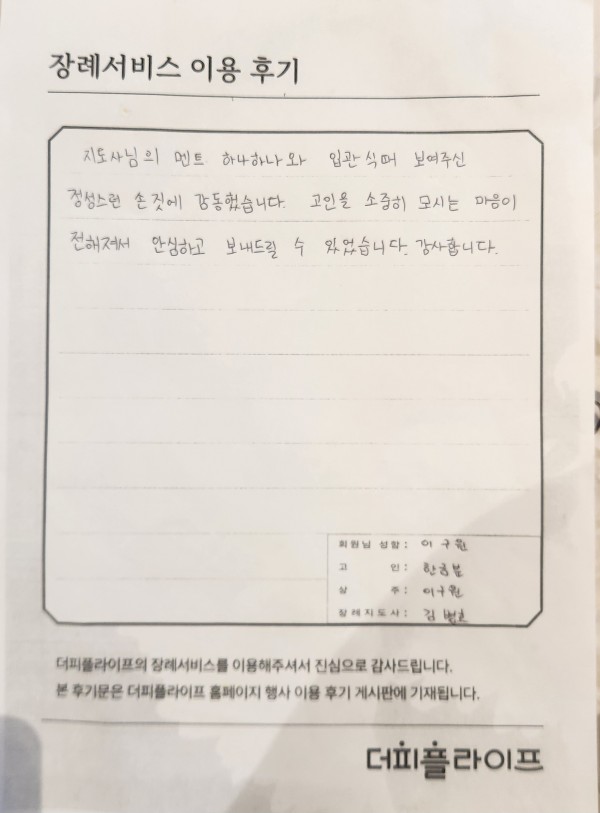 장례서비스 이용 후기
지도사님의 멘트 하나하나와 입관식때 보여주신
정성스런 손짓에 감동했습니다. 고인을 소중히 모시는 마음이
전해져서 안심하고 보내드릴 수 있었습니다. 감사합니다.
회원님 성함: 이구원
고 인: 한금분
상 주: 이구원
장례지도사: 김범호
더피플라이프의 장례서비스를 이용해주셔서 진심으로 감사드립니다.
본 후기문은 더피플라이프 홈페이지 행사 이용 후기 게시판에 기재됩니다.
더피플라이프